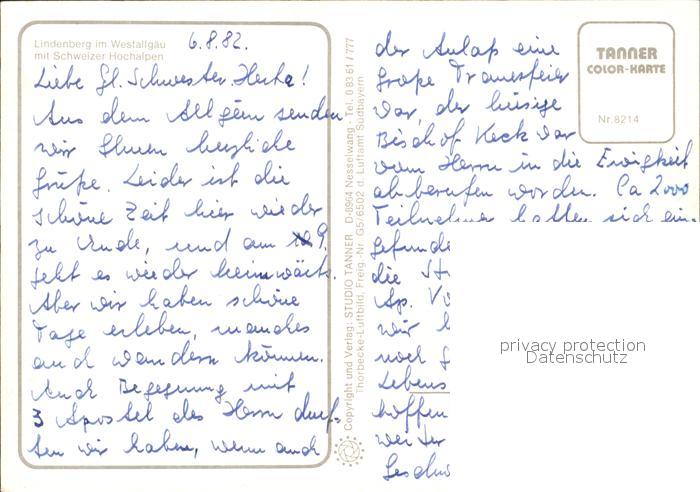 Lindenberg im Westallgäu
mit Schweizer Hochalpen
6.8.82.
Liebe Gl. Schwester Herta!
Aus dem Allgäu senden
wir Ihnen herzliche
Grüße. Leider ist die
schöne Zeit hier wieder
zu Ende, und am 9.
geht es wieder heimwärts.
Aber wir haben schöne
Tage erleben, manches
auch wandern können.
Auch Begegnung mit
3 Apostel des Herrn durf-
ten wir haben, wenn auch
Copyright und Verlag: STUDIO TANNER, D-8964 Nesselwang · Tel. 0 83 61 / 777
Thorbecke-Luftbild, Freig.-Nr. G5/6502 d. Luftamt Südbayern
der Anlaß eine
große Trauerfeier
war, der hiesige
Bischof Keck war
vom Herrn in die Ewigkeit
abberufen worden. Ca 2000
Teilnehmer hatten sich ein-
gefunde
die
Ap.
wir
noch
Lebens
hoffen
weiter
Geschw
TANNER
COLOR-KARTE
Nr. 8214
privacy protection
Datenschutz